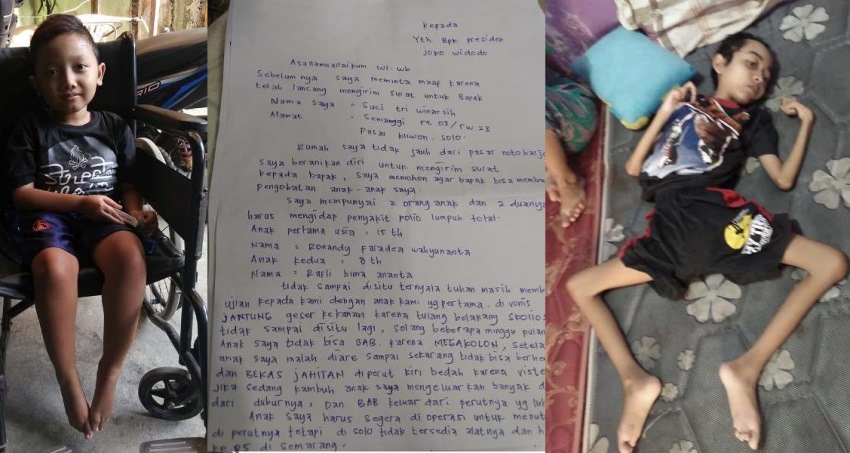 Kepada
Yth Bpk presiden
Joko widodo
Assallamuallaikum wr. wb
Sebelumnya saya meminta maaf karena
telah lancang mengirim surat untuk Bapak
Nama saya = Suci tri winarsih
Alamat = Semanggi rt 03/rw 23
Pasar kliwon. Solo.
Rumah saya tidak jauh dari pasar notoharjo
saya beranikan diri untuk mengirim surat
kepada bapak, saya memohon agar bapak bisa memban
pengobatan anak-anak saya.
Saya mempunyai 2 orang anak dan 2 duanya
harus mengidap penyakit polio lumpuh total.
Anak pertama usia = 15 th
Nama = Ronandy Faradea wahyunanta
Anak kedua = 8 th
Nama = Rafli bima ananta
tidak sampai disitu ternyata tuhan masih memb
ujian kepada kami dengan anak kami yg pertama. di vonis
JANTUNG geser kekanan karena tulang belakang skolios
tidak sampai disitu lagi, selang beberapa minggu pulan
Anak saya tidak bisa BAB. karena MEGAKOLON, setela
anak saya malah diare sampai sekarang tidak bisa berhe
dan BEKAS JAHITAN diperut kiri bedah karena viste
Jika sedang kambuh anak saya mengeluarkan banyak d
dari duburnya, Dan BAB keluar dari perutnya yg lu
Anak saya harus segera di operasi untuk menut
di perutnya tetapi di solo tidak tersedia alatnya dan h
ke RS di Semarang.